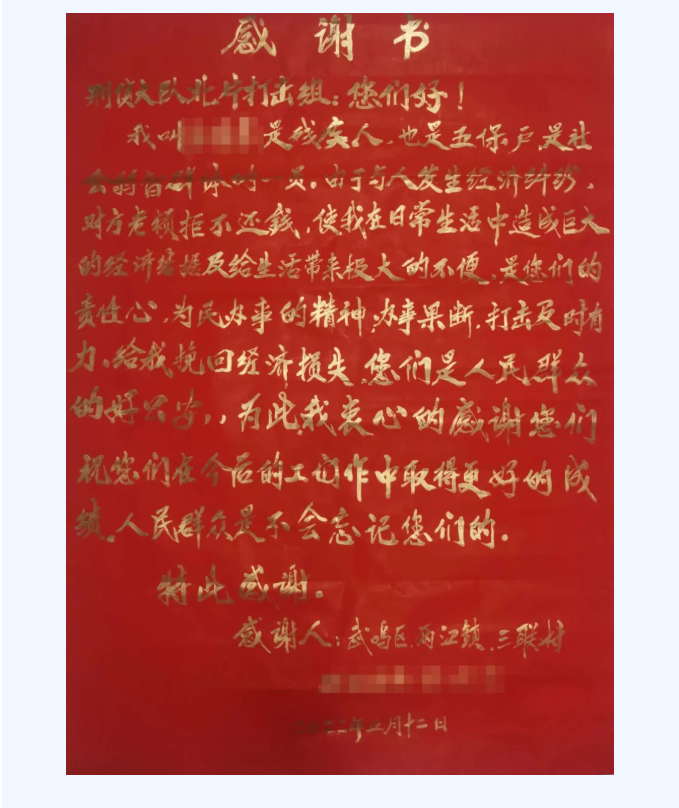 感谢书
刑侦大队北片打击组：您们好！
我叫 是残疾人，也是五保户，是社
会弱智群体的一员。由于与人发生经济纠纷，
对方老赖拒不还錢，使我在日常生活中造成巨大
的经济 及给生活带来极大的不便，是您们的
责任心，为民办事的精神，办事果断，打击及时有
力、给我挽回经济损失，您们是人民群众
的好公安，，为此，我衷心的感谢您们
祝您们在今后的工 作中取得更好的成
绩。人民群众是不会忘记您们的。
特此感谢。
感谢人：武鸣区，两江镇，三联村
二二年 月十二日